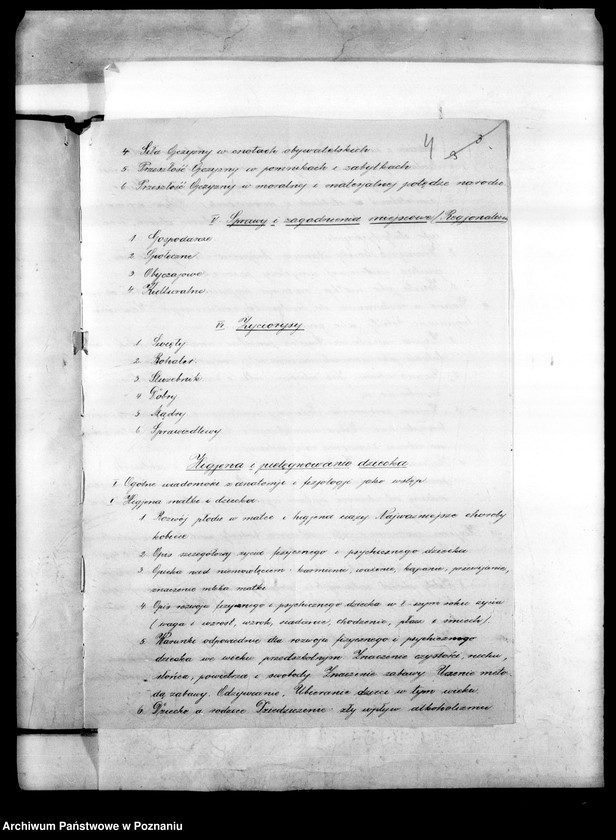 4 3
4 Siła Ojczyzny w cnotach obywatelskich
5 Przeszłość Ojczyzny w pomnikach i zabytkach
6 Przeszłość Ojczyzny w moralnej i materjalnej potędze narodu
V Sprawy i zagadnienia miejscowe / Regjonalizm
1 Gospodarcze
2 Społeczne
3 Obyczajowe
4 Kulturalne
VI Życiorysy
1 Święty
2 Bohater
3 Służebnik
4 Dobry
5 Mądry
6 Sprawiedliwy
Higjena i pielęgnowanie dziecka
I Ogólne wiadomości z anatomji i fizjologji jako wstęp
I Higjena matki i dziecka
1 Rozwój płodu w matce i higjena ciąży Najważniejsze choroby
kobiece
2 Opis szczegółowy życia fizycznego i psychicznego dziecka
3 Opieka nad niemowlęciem: karmienie, ważenie, kąpanie, przewijanie,
znaczenie mleka matki
4 Opis rozwoju fizycznego i psychicznego dziecka w 1-szym roku życia
(waga i wzrost, wzrok, siadanie, chodzenie, płacz i śmiech).
5 Warunki odpowiednie dla rozwoju fizycznego i psychicznego
dziecka we wieku przedszkolnym Znaczenie czystości, ruchu,
słońca, powietrza i swobody Znaczenie zabawy Uczenie meto-
dą zabawy. Odżywianie, Ubieranie dzieci w tym wieku.
6 Dziecko a rodzice Dziedziczenie: zły wpływ alkoholizmu
Archiwum Państwowe w Poznaniu